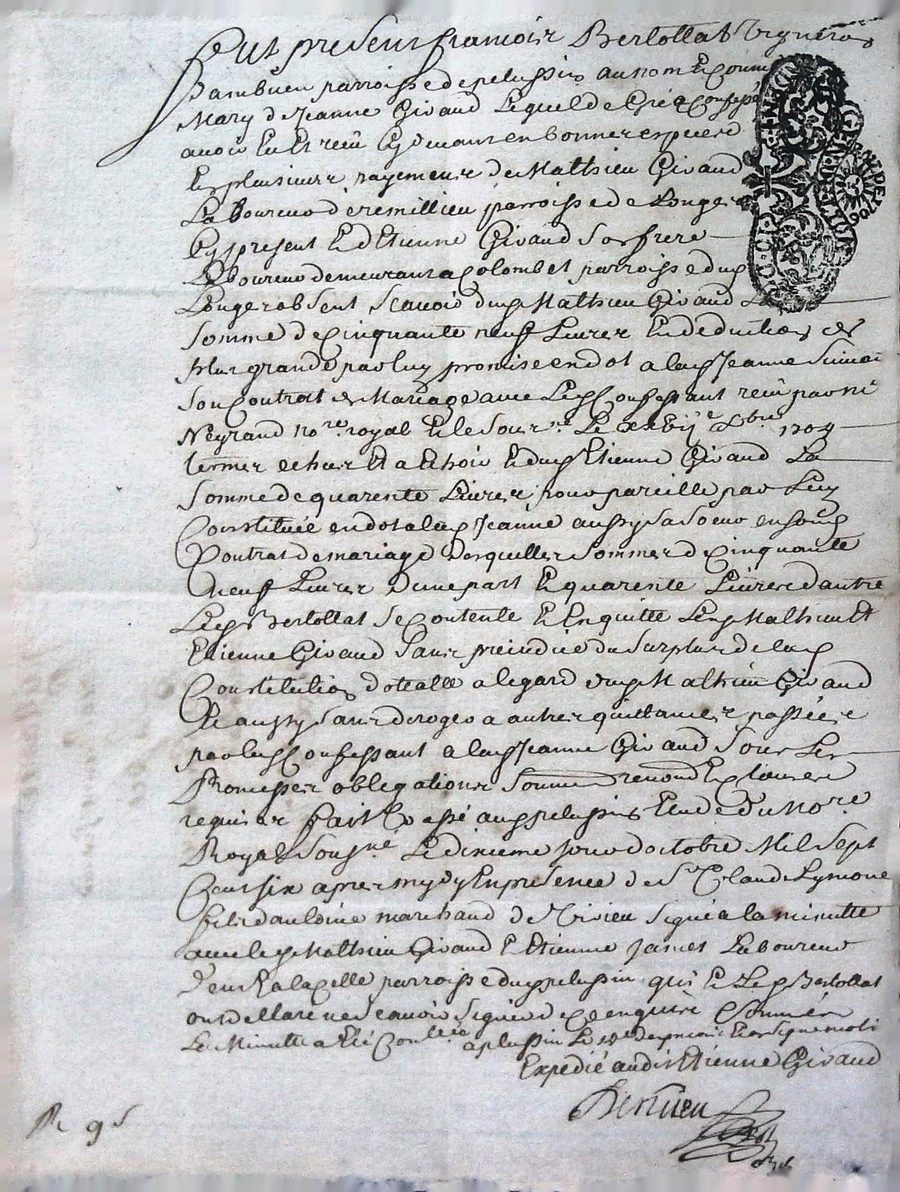 fut present francois Bertollat Vigneron
parroisse de pelussin au nom et comme
Mary de Jeanne Givaud Lequel de gré a Confessé
avoir Eu et receu Cy devant en bonnes especes
En plusieurs payements de Mathieu Givaud
Laboureur de remillieu parroisse de Longes
Cy present Et d'Etienne Givaud son frere
Laboureur demeurant a Colombet parroisse dud
Longes absent scavoir dud Mathieu Givaud La
somme de Cinquante neuf Livres En deduction de
plus grande par luy promise en dot a lad Jeanne
son Contrat de Mariage avec Led Confessant receu par Me
Neyrand nore royal Le xxbij 1704
termes echus Et a Echoir Et dud Etienne Givaud La
somme de quarente Livres pour pareille par Luy
Constituée en dot a lad Jeanne aussy sa soeur en sond
Contrat de mariage Desquelles sommes de Cinquante
neuf Livres d'une part Et quarente Livres d'autre
Led Bertollat se Contente Et En quitte Led Mathieu Et
Etienne Givaud sans prejudice du surplus de lad
Constitution dotealle a legard dud Mathieu Givaud
Et aussy sans deroger a autres quittances passées
par led Confessant a lad Jeanne Givaud sous Les
Promesses obligations soumissions renonon Et Clauses
requises fait Et passé aud pelussin Etude du Nore
Royal sousgné Le dixieme jour d'octobre Mil Sept
Cent six apres mydy En presence de Sr Claude Lymone
fils d'antoine marchand de Virieu signé a la minutte
avec led Mathieu Givaud Et Etienne james Laboureur
de la Celle parroisse dud pelussin qui Et Led Bertollat
ont declaré ne scavoir signer de ce enquis Et sommés
La Minutte a Eté Conlée a plussin Le
Expedié aud Etienne Givaud
Bertieu
R 9 s